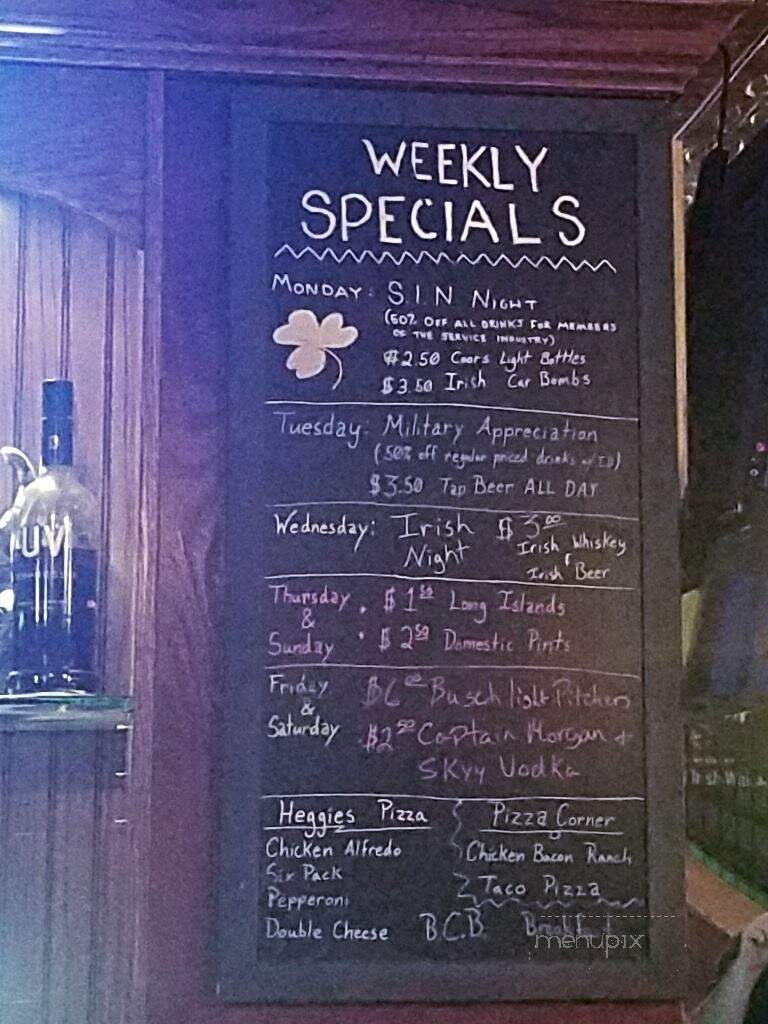 WEEKLY
SPECIALS
MONDAY: S.I.N NIGHT
(50% OFF ALL DRINKS FOR MEMBERS
OF THE SERVICE INDUSTRY)
$2.50 Coors Light Bottles
$3.50 Irish Car Bombs
Tuesday: Military Appreciation
(50% off regular priced drinks w/ ID)
$3.50 Tap Beer ALL DAY
Wednesday: Irish Night $3.00 Irish Whiskey
Irish Beer
Thursday & Sunday : $1.50 Long Islands
$2.50 Domestic Pints
Friday & Saturday $6.00 Busch light Pitchers
$2.50 Captain Morgan +
SKyy Vodka
Heggies Pizza
Chicken Alfredo
Six Pack
Pepperoni
Double Cheese
Pizza Corner
Chicken Bacon Ranch
Taco Pizza
B.C.B.
menupix
UV